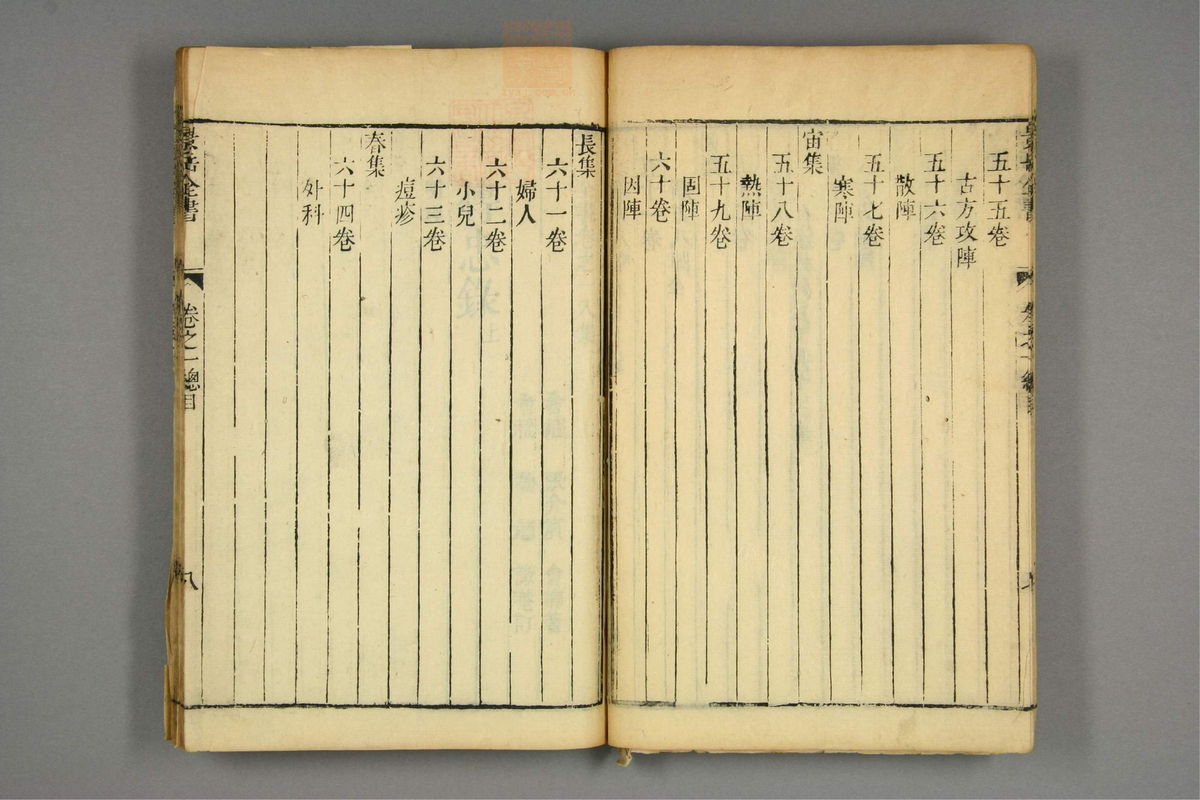 五十五卷
古方攻陣
五十六卷
散陣
五十七卷
寒陣
宙集
五十八卷
熱陣
五十九卷
固陣
六十卷
因陣
長集
六十一卷
婦人
六十二卷
小兒
六十三卷
痘疹
春集
六十四卷
外科
景岳全書
卷之一總目
八